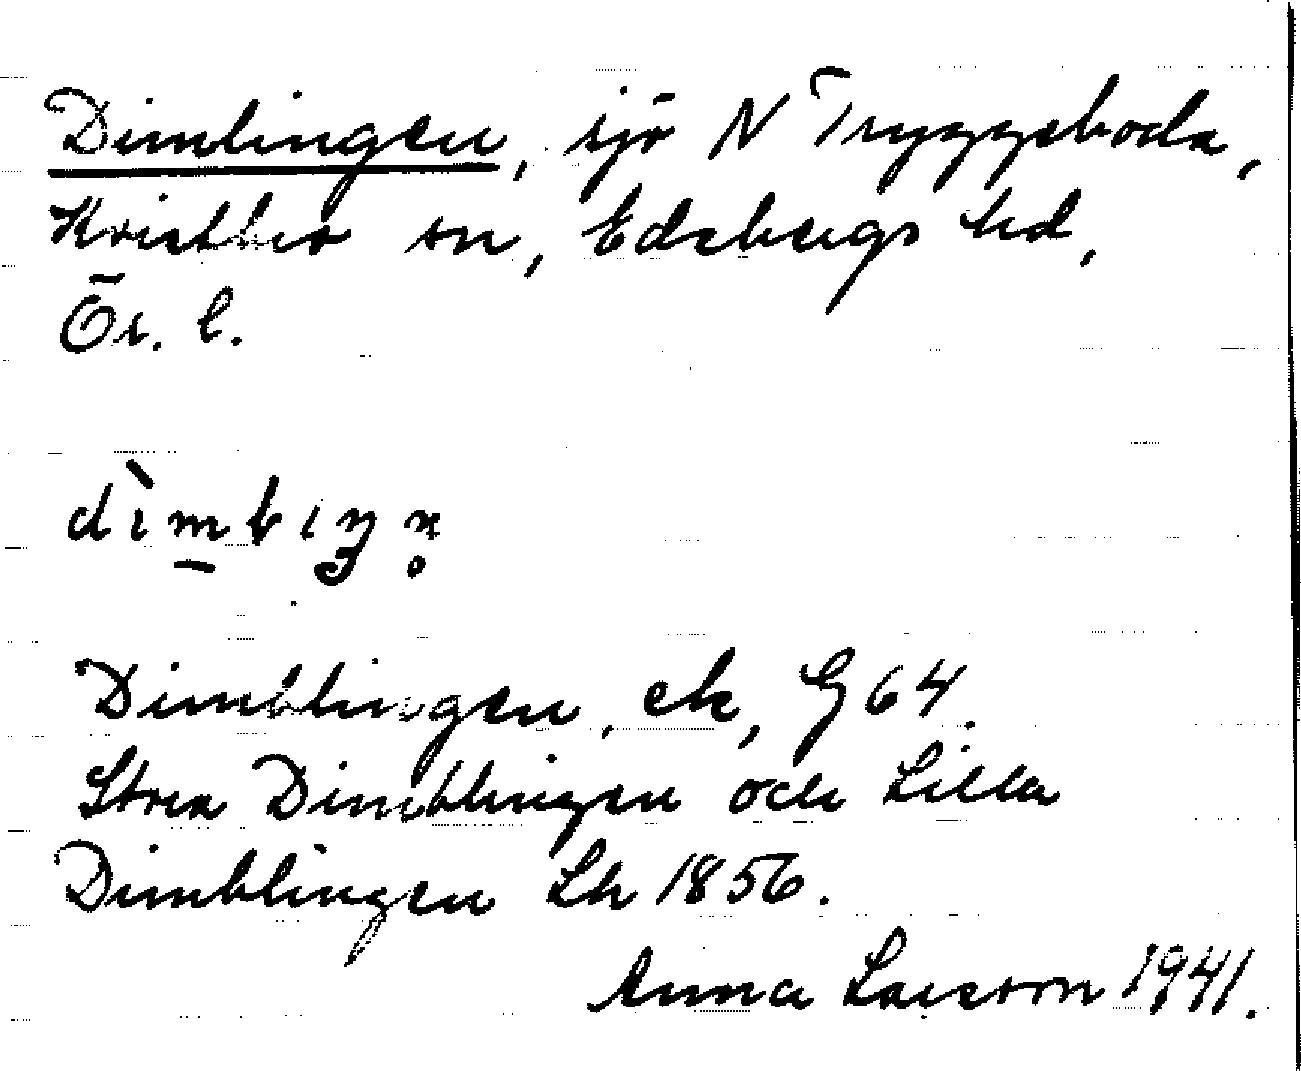 Dimlingen, sjö N Tryggeboda,
Kvistbro sn, Edsbergs hd,
Ör. l.
dìmbıŋn̥
Dimblingen, ek, G 64.
Stora Dimblingen och Lilla
Dimblingen Lk 1856.
Anna Larsson 1941.